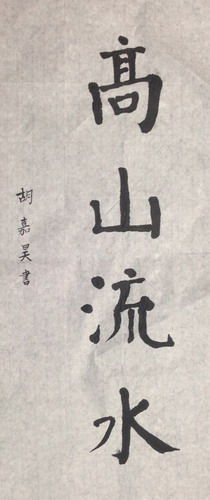 髙山流水
胡嘉昊書